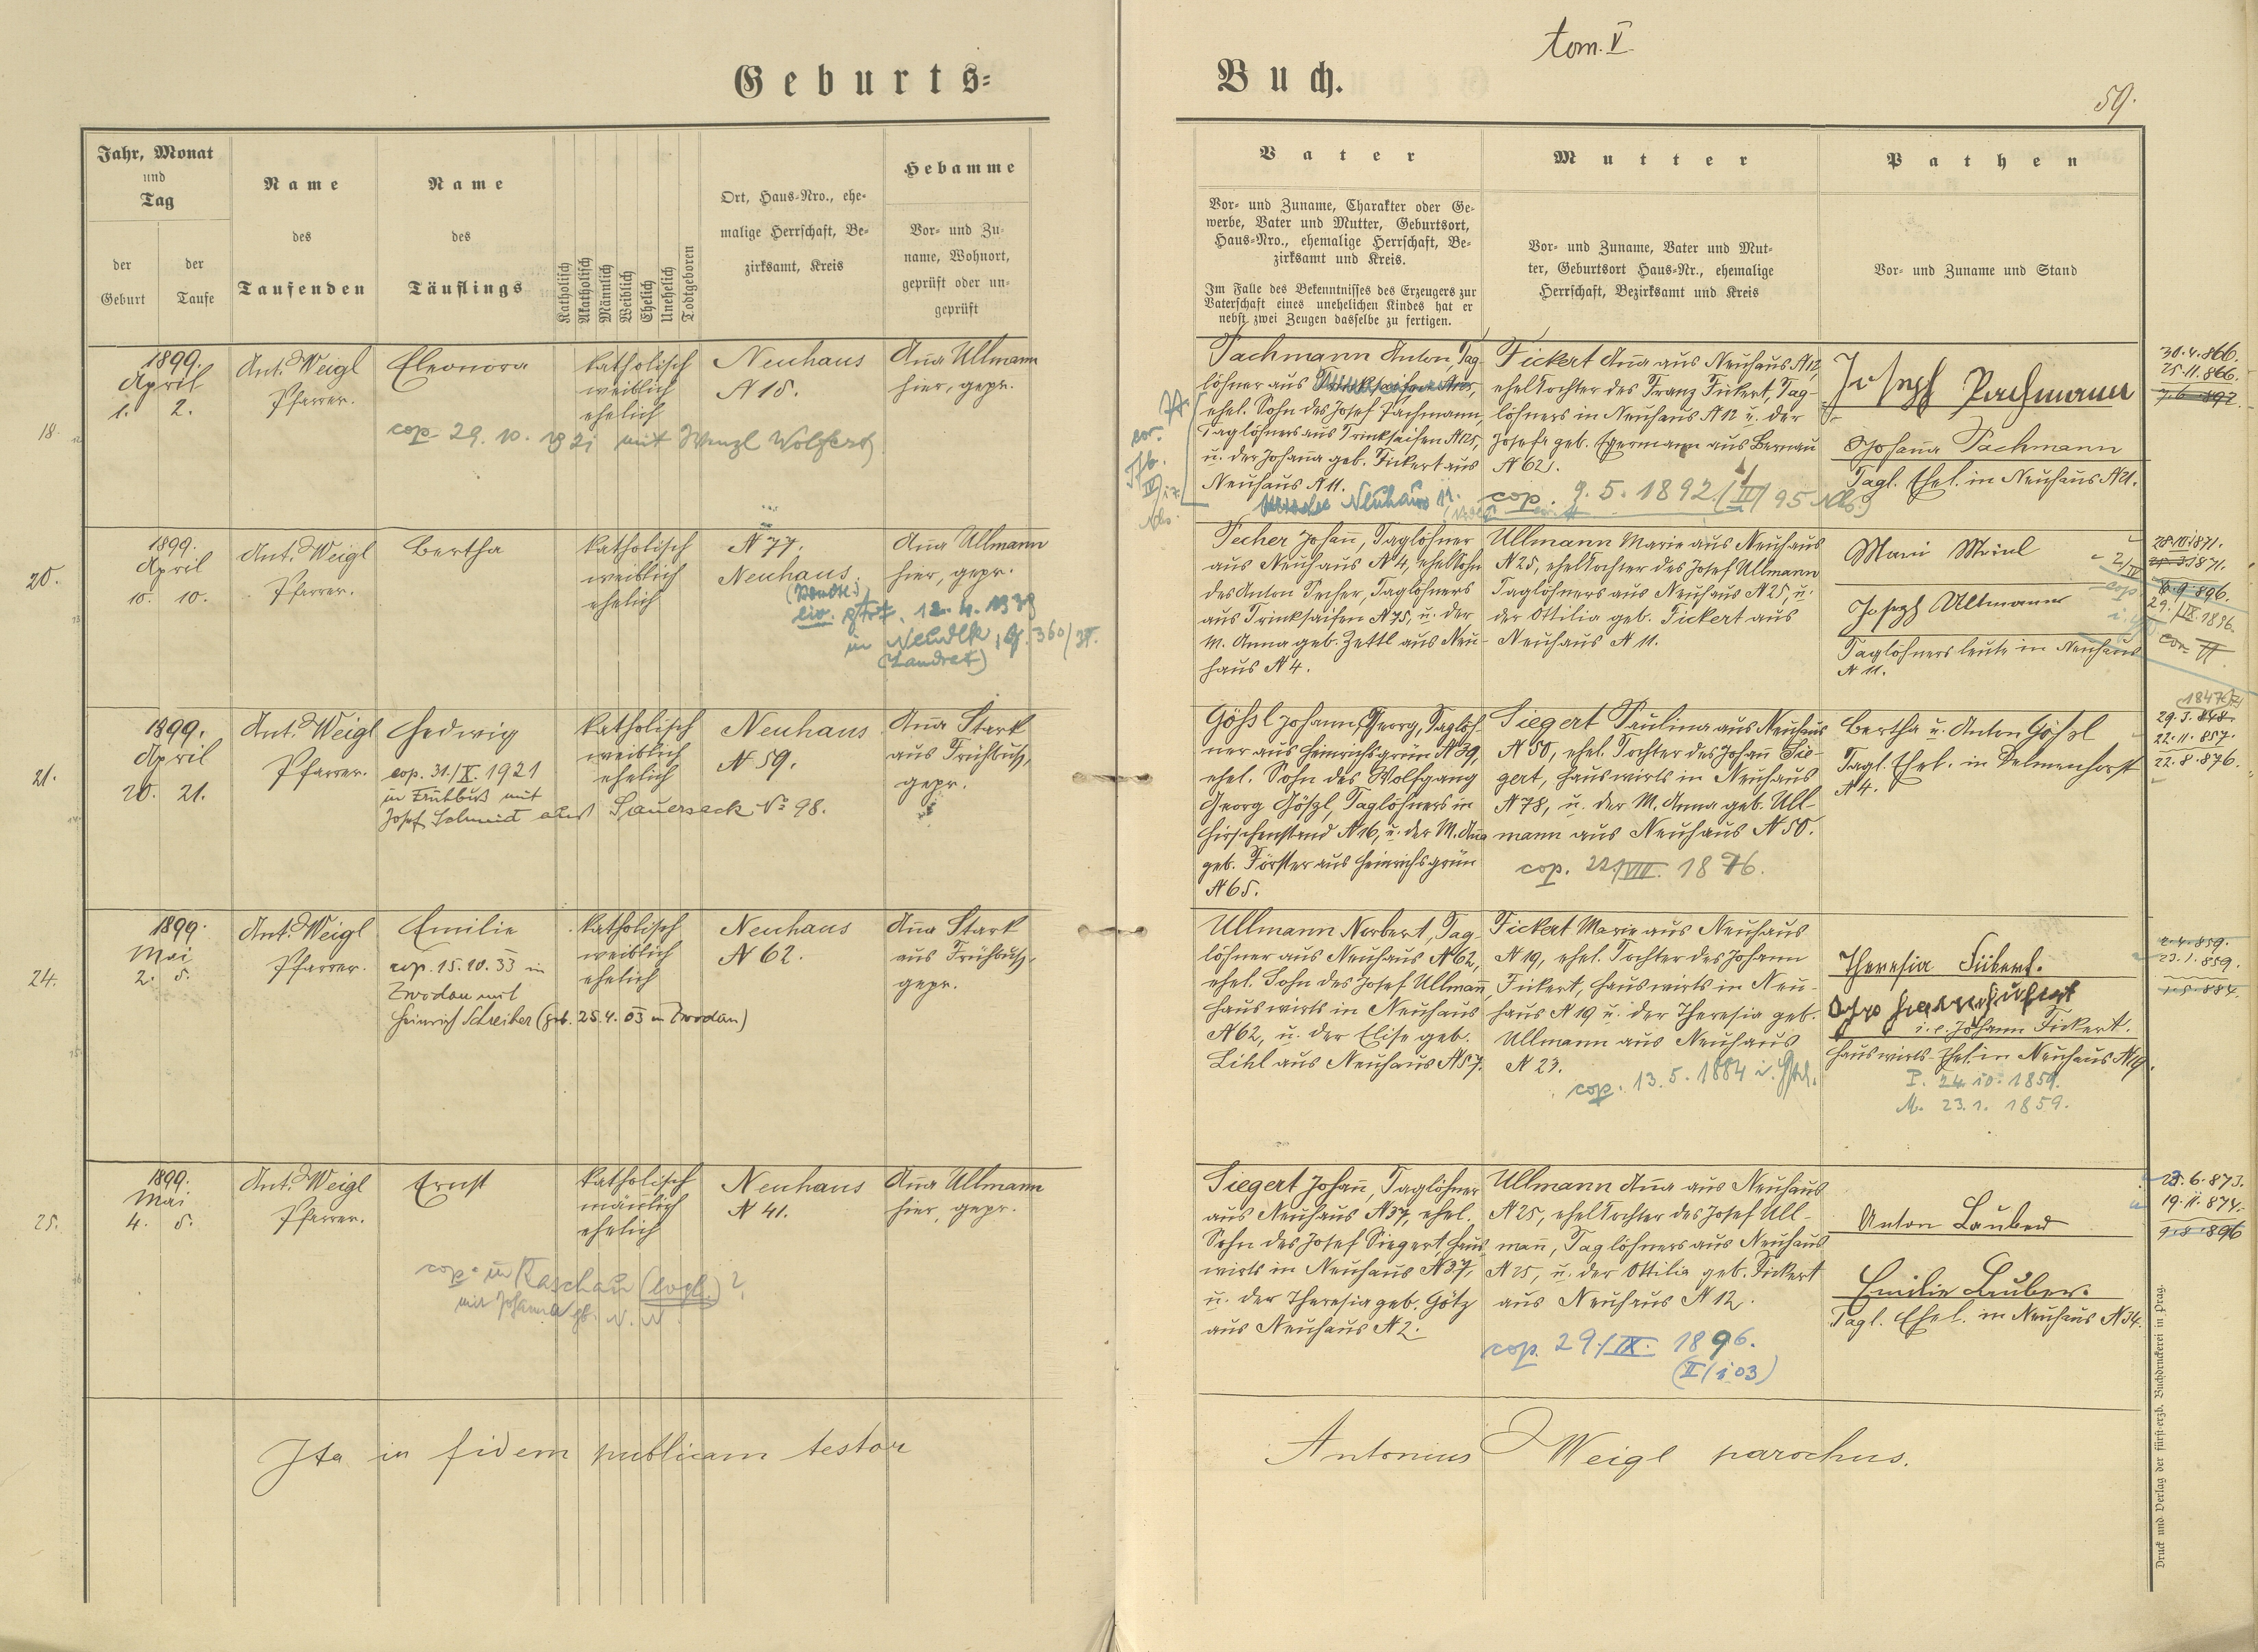 tom. V.
Geburts=
Buch.
59.
Jahr, Monat
und
Tag
der
Geburt
der
Taufe
Name
des
Taufenden
Name
des
Täuflings
Katholisch
Akatholisch
Männlich
Weiblich
Ehelich
Unehelich
Todtgeboren
Ort, Haus-Nro., ehe-
malige Herrschaft, Be-
zirksamt, Kreis
Hebamme
Vor- und Zu-
name, Wohnort,
geprüft oder un-
geprüft
Vater
Vor- und Zuname, Charakter oder Ge-
werbe, Vater und Mutter, Geburtsort,
Haus-Nro., ehemalige Herrschaft, Be-
zirksamt und Kreis.
Im Falle des Bekenntnisses des Erzeugers zur
Vaterschaft eines unehelichen Kindes hat er
nebst zwei Zeugen dasselbe zu fertigen.
Mutter
Vor- und Zuname, Vater und Mut-
ter, Geburtsort Haus-Nr., ehemalige
Herrschaft, Bezirksamt und Kreis
Pathen
Vor- und Zuname und Stand
18.
1899.
April
1. 2.
Ant. Weigl
Pfarrer.
Eleonora
katholisch
weiblich
ehelich
Neuhaus
N 15.
Aña Ullmann
hier, gepr.
cop 29. 10. 1921 mit Wenzl Wolfert
Pachmann Anton, Tag-
löhner aus
ehel. Sohn des Josef Pachmann,
Taglöhners aus Trinksaifen N 125,
u. der Johaña geb. Fickert aus
Neuhaus N 11.
Neuhaus 11.
Fickert Aña aus Neuhaus N 12,
ehel. Tochter des Franz Fickert, Tag-
löhners in Neuhaus N 12 u. der
Josefa geb. Egermann aus Bernau
N 62.
cop. 9. 5. 1892 (II/95 Nhs.)
Joseph Pachmann
Johaña Pachmann
Tagl. Ehel. in Neuhaus N 21.
30. 4. 866.
25. 11. 866.
7. 6. 892.
20.
1899.
April
10. 10.
Ant. Weigl
Pfarrer.
Bertha
katholisch
weiblich
ehelich
N 77.
Neuhaus.
12. 4. 1938
in Neudek, 360/
(Landrat)
Aña Ullmann
hier, gepr.
Pecher Johañ, Taglöhner
aus Neuhaus N 4, ehel. Sohn
des Anton Pecher, Taglöhners
aus Trinksaifen N 75, u. der
M. Anna geb. Zettl aus Neu-
haus N 4.
Ullmann Marie aus Neuhaus
N 25, ehel. Tochter des Josef Ullmann
Taglöhners aus Neuhaus N 25, u.
der Ottilia geb. Fickert aus
Neuhaus N 11.
Mari Meinl
Joseph Ullmann
Taglöhnersleute in Neuhaus
N 11.
28. III. 1871.
6. 9. 896.
29./IX. 1896.
21.
1899.
April
20. 21.
Ant. Weigl
Pfarrer.
Hedwig
cop. 31./X. 1921
in Frühbuß mit
Josef Schmidt aus Sauersack No 98.
katholisch
weiblich
ehelich
Neuhaus
N 59.
Aña Stark
aus Frühbuß,
gepr.
Gößl Johañ Georg, Taglöh-
ner aus Heinrichsgrün N 39,
ehel. Sohn des Wolfgang
Georg Gößl, Taglöhners in
Hirschenstand N 16, u. der M. Aña
geb. Förster aus Heinrichsgrün
N 65.
Siegert Paulina aus Neuhaus
N 50, ehel. Tochter des Johañ Sie-
gert, Hauswirts in Neuhaus
N 78, u. der M. Anna geb. Ull-
mann aus Neuhaus N 50.
cop. 22./VIII. 1876.
Bertha u. Anton Gößl
Tagl. Ehel. in Delmenhorst
N 4.
1847
29. 3. 848.
22. 11. 857.
22. 8. 876.
24.
1899.
Mai
2. 5.
Ant. Weigl
Pfarrer.
Emilie
cop. 15. 10. 33 in
Zwodau mit
Heinrich Schreiber (geb. 25. 4. 03 in Zwodau)
katholisch
weiblich
ehelich
Neuhaus
N 62.
Aña Stark
aus Frühbuß,
gepr.
Ullmann Norbert, Tag-
löhner aus Neuhaus N 62,
ehel. Sohn des Josef Ullmañ,
Hauswirts in Neuhaus
N 62, u. der Elise geb.
Lihl aus Neuhaus N 87.
Fickert Marie aus Neuhaus
N 19, ehel. Tochter des Johann
Fickert, Hauswirts in Neu-
haus N 19 u. der Theresia geb.
Ullmann aus Neuhaus
N 23.
cop. 13. 5. 1884
Theresia Fickert.
i. e. Johann Fickert.
Hauswirts-Ehel. in Neuhaus N 19.
P. 24. 10. 1859.
M. 23. 1. 1859.
2. 4. 859.
23. 1. 859.
1. 5. 884.
25.
1899.
Mai
4. 5.
Ant. Weigl
Pfarrer.
Ernst
katholisch
mäñlich
ehelich
Neuhaus
N 41.
Aña Ullmann
hier, gepr.
cop. in Raschau (evgl.)?
mit Johanna geb. N. N.
Siegert Johañ, Taglöhner
aus Neuhaus N 37, ehel.
Sohn des Josef Siegert, Haus-
wirts in Neuhaus N 37,
u. der Theresia geb. Götz
aus Neuhaus N 2.
Ullmann Aña aus Neuhaus
N 25, ehel. Tochter des Josef Ull-
mañ, Taglöhners aus Neuhaus
N 25, u. der Ottilia geb. Fickert
aus Neuhaus N 12.
cop. 29./IX. 1896.
(II/103)
Anton Lauber
Emilie Lauber.
Tagl. Ehel. in Neuhaus N 34.
23. 6. 873.
19. 11. 874.
9. 8. 896
Ita in fidem publicam testor
Antonius Weigl parochus.
Druck und Verlag der fürst-erzb. Buchdruckerei in Prag.